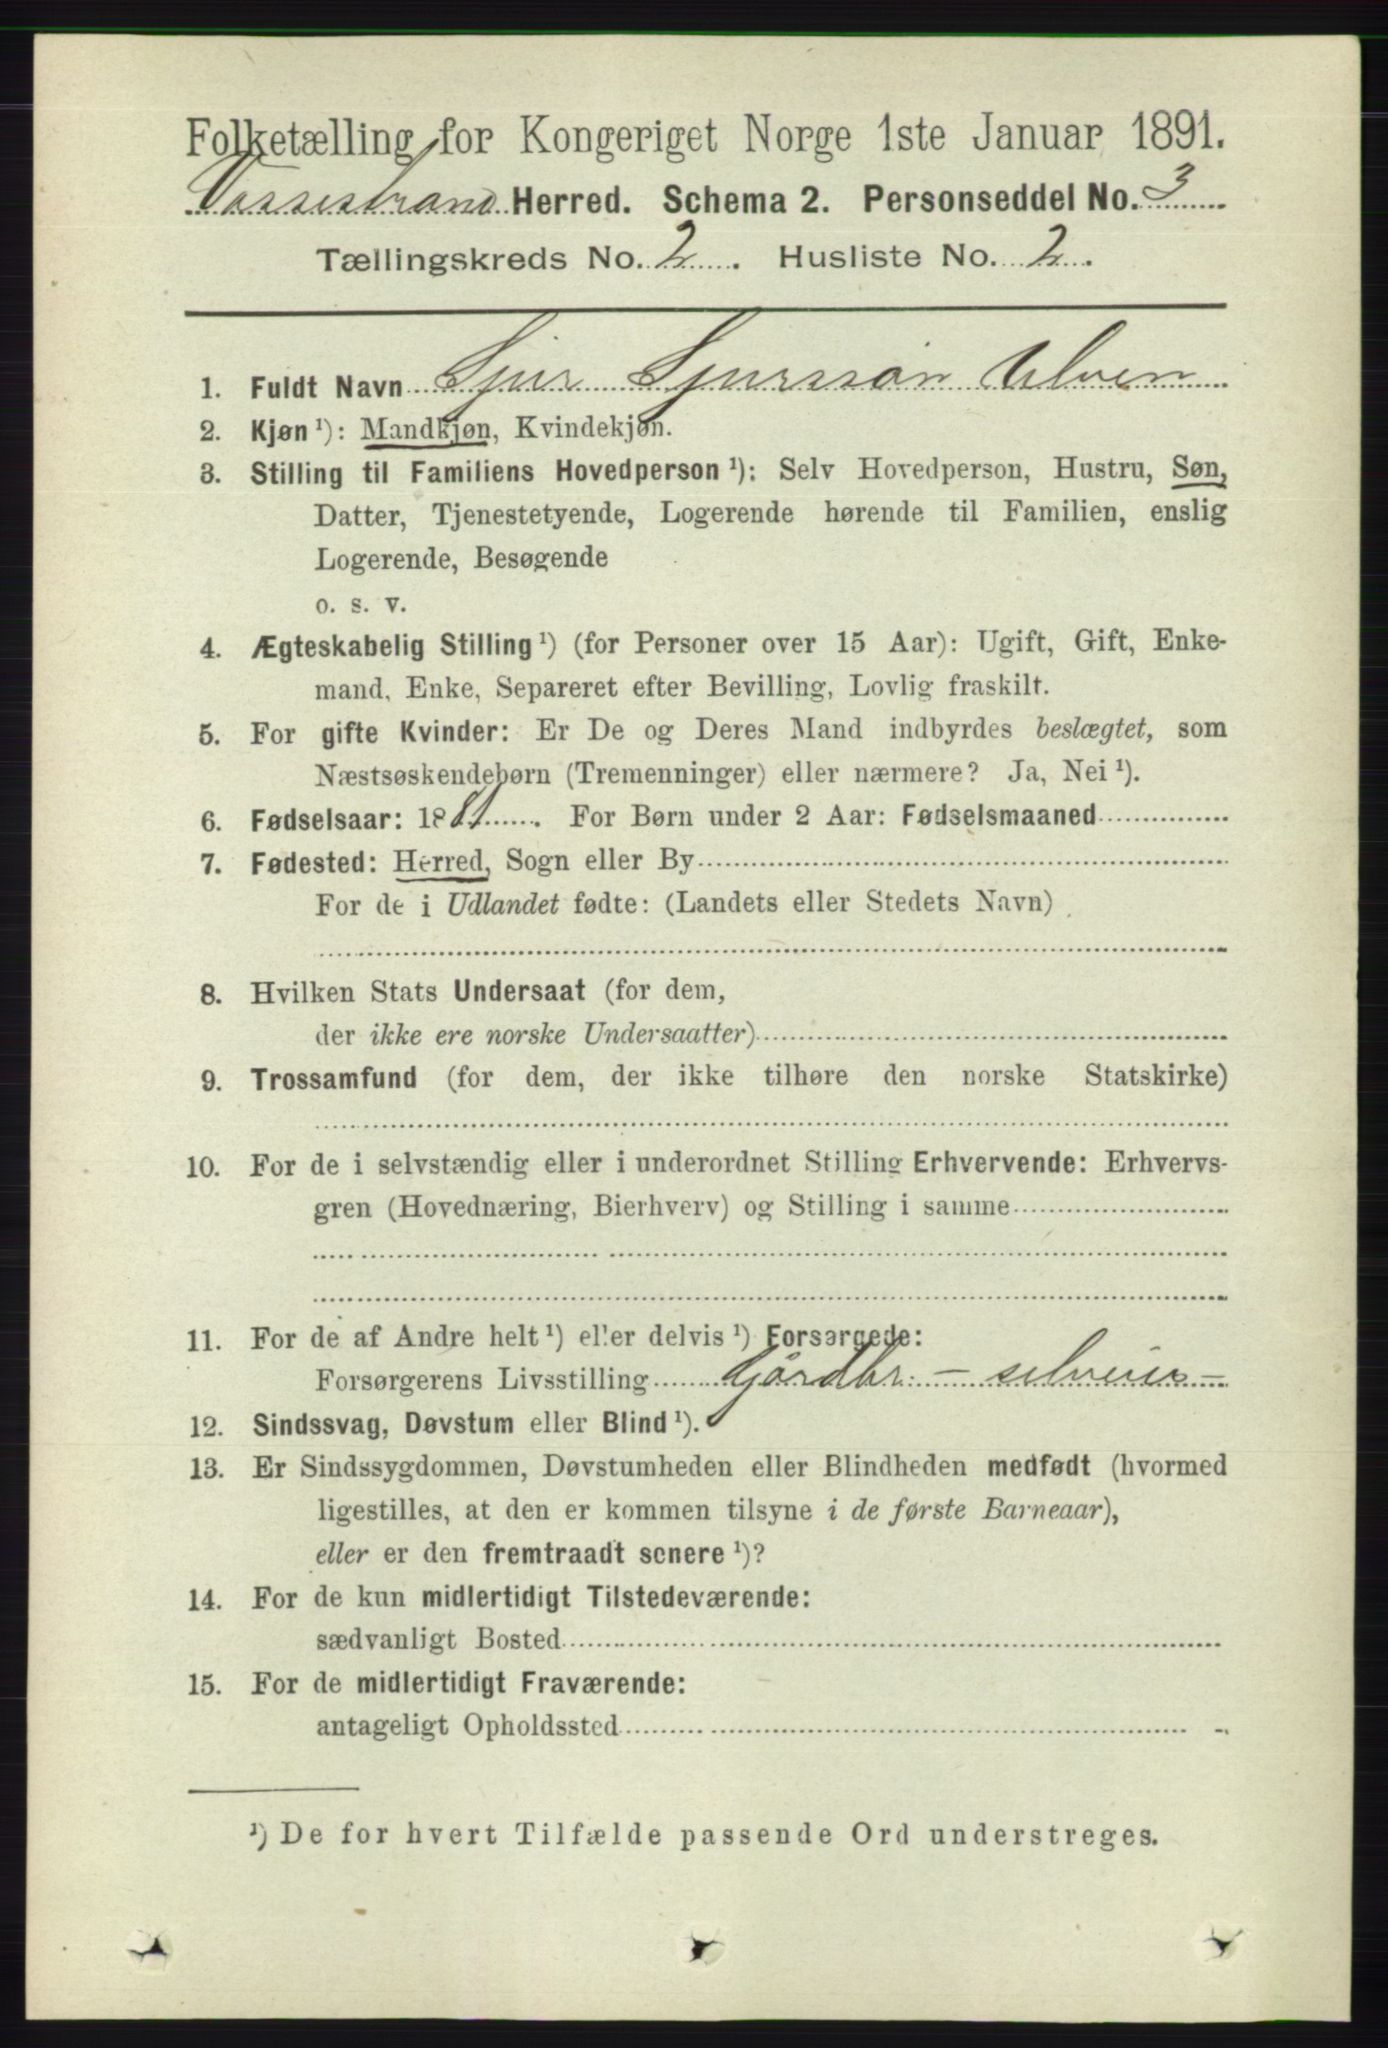 Folketælling for Kongeriget Norge 1ste Januar 1891.
Vossestrand Herred. Schema 2. Personseddel No. 3
Tællingskreds No. 2. Husliste No. 2.
1. Fuldt Navn Sjur Sjurssøn Ulven
2. Kjøn ¹): Mandkjøn, Kvindekjøn.
3. Stilling til Familiens Hovedperson ¹): Selv Hovedperson, Hustru, Søn,
Datter, Tjenestetyende, Logerende hørende til Familien, enslig
Logerende, Besøgende
o. s. v.
4. Ægteskabelig Stilling ¹) (for Personer over 15 Aar): Ugift, Gift, Enke-
mand, Enke, Separeret efter Bevilling, Lovlig fraskilt.
5. For gifte Kvinder: Er De og Deres Mand indbyrdes beslægtet, som
Næstsøskendebørn (Tremenninger) eller nærmere? Ja, Nei ¹).
6. Fødselsaar: 1881. For Børn under 2 Aar: Fødselsmaaned
7. Fødested: Herred, Sogn eller By
For de i Udlandet fødte: (Landets eller Stedets Navn)
8. Hvilken Stats Undersaat (for dem,
der ikke ere norske Undersaatter)
9. Trossamfund (for dem, der ikke tilhøre den norske Statskirke)
10. For de i selvstændig eller i underordnet Stilling Erhvervende: Erhvervs-
gren (Hovednæring, Bierhverv) og Stilling i samme
11. For de af Andre helt ¹) eller delvis ¹) Forsørgede:
Forsørgerens Livsstilling Gårdbr. - selveier -
12. Sindssvag, Døvstum eller Blind ¹).
13. Er Sindssygdommen, Døvstumheden eller Blindheden medfødt (hvormed
ligestilles, at den er kommen tilsyne i de første Barneaar),
eller er den fremtraadt senere ¹)?
14. For de kun midlertidigt Tilstedeværende:
sædvanligt Bosted
15. For de midlertidigt Fraværende:
antageligt Opholdssted
¹) De for hvert Tilfælde passende Ord understreges.